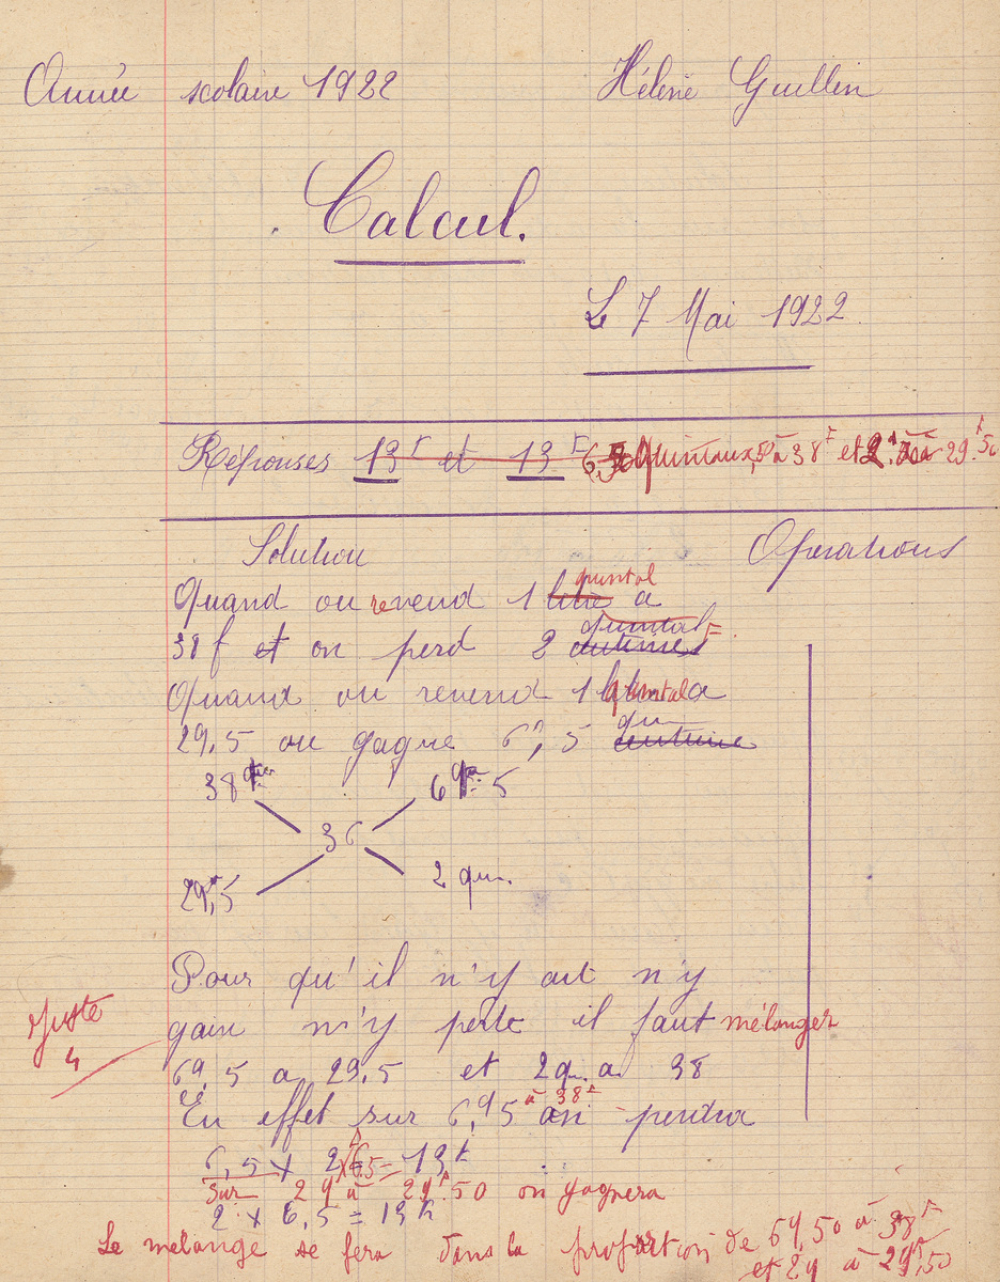 Année scolaire 1922 Hélène Guillen
Calcul.
Le 7 Mai 1922
Réponses 13F et 13F 6,50 quintaux à 38F et 2q à 29F.50
Solution Opérations
Quand on revend 1 litre quintal a
38f et on perd 2 centimes quintal F
Quand on revend 1 quintal a
29,5 on gagne 6q,5 qu centime
38 6q 5
36
29F,5 2 qu.
Pour qu'il n'y ait n'y
gain n'y perte il faut mélanger
Juste
4
6q,5 a 29,5 et 2qu. a 38
En effet sur 6,q5 à 38F on perdra
6,5 x 2F x 6.5 = 13F
Sur 2q à 29F.50 on gagnera
2 x 6,5 = 13F
Le mélange se fera dans la proportion de 6q,50 à 38F
et 2q à 29F,50